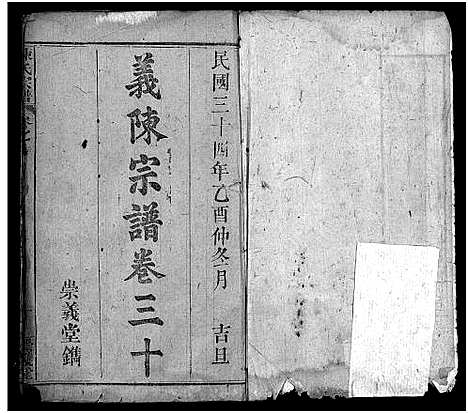 民國三十四年乙酉仲冬月　吉旦
義陳宗譜卷三十
崇義堂鐫
氏宗譜